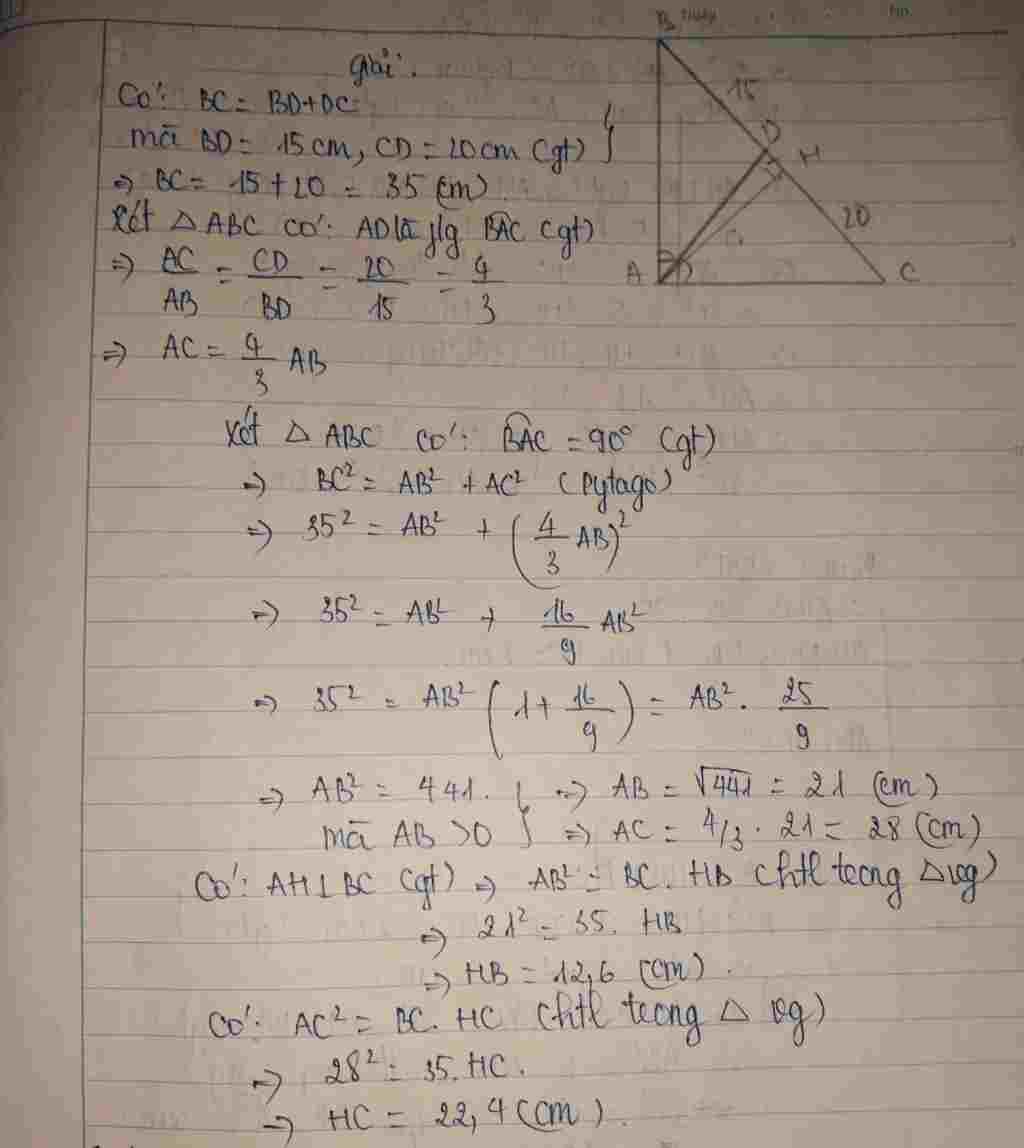 Giải:
Có: BC = BD+DC
mà BD = 15cm, CD = 20cm (gt) }
=> BC = 15 + 20 = 35 (cm)
Xét △ ABC có: AD là p/g BAC (gt)
=> AC/AB = CD/BD = 20/15 = 4/3
=> AC = 4/3 AB
Xét △ ABC có: BAC = 90° (gt)
=> BC² = AB² + AC² (Pytago)
=> 35² = AB² + (4/3 AB)²
=> 35² = AB² + 16/9 AB²
=> 35² = AB² (1 + 16/9) = AB² . 25/9
=> AB² = 441. } => AB = √441 = 21 (cm)
mà AB >0 } => AC = 4/3 . 21 = 28 (cm)
Có: AH ⊥ BC (gt) => AB² = BC . HB (htl trong △ vg)
=> 21² = 35 . HB
=> HB = 12,6 (cm) .
Có: AC² = BC . HC (htl trong △ vg)
=> 28² = 35. HC .
=> HC = 22,4 (cm) .
B
15
D
H
20
A
C